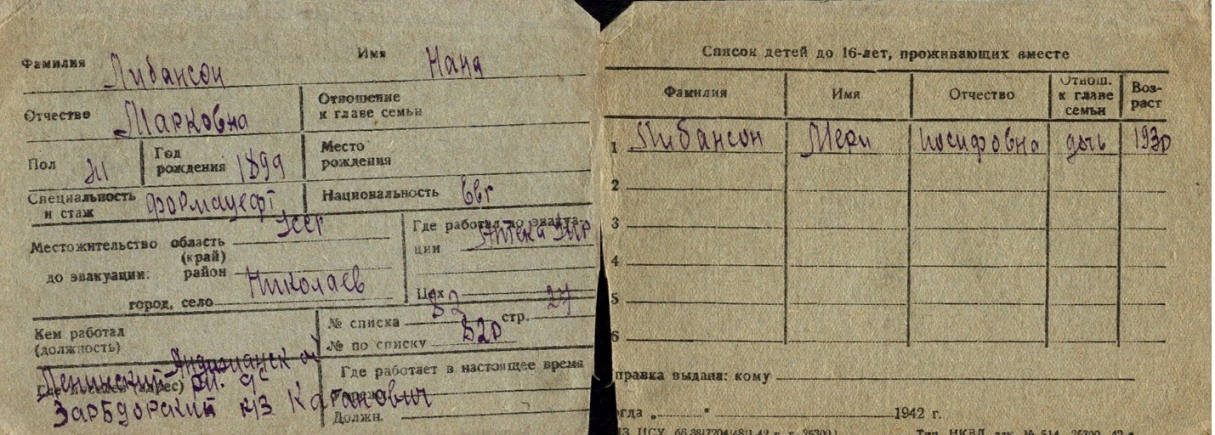 Фамилия Либансон Имя Нана
Отчество Марковна Отношение к главе семьи
Пол Ж Год рождения 1899 Место рождения
Специальность и стаж формацефт Национальность
Местожительство до эвакуации: область (край)
район
город, село Николаев
Где работал до эвакуации Аптека
Цех
Кем работал (должность)
№ списка 82 стр. 27
№ по списку 820
Где поселен (адрес) Ленинский
Зарбдорский к/з Каганович
Где работает в настоящее время
Должн.
Список детей до 16-лет, проживающих вместе
Фамилия Имя Отчество Отнош. к главе семьи Возраст
1 Либансон Мери Иосифовна дочь 1930
2
3
4
5
6
правка выдана: кому
огда „ " 1942 г.